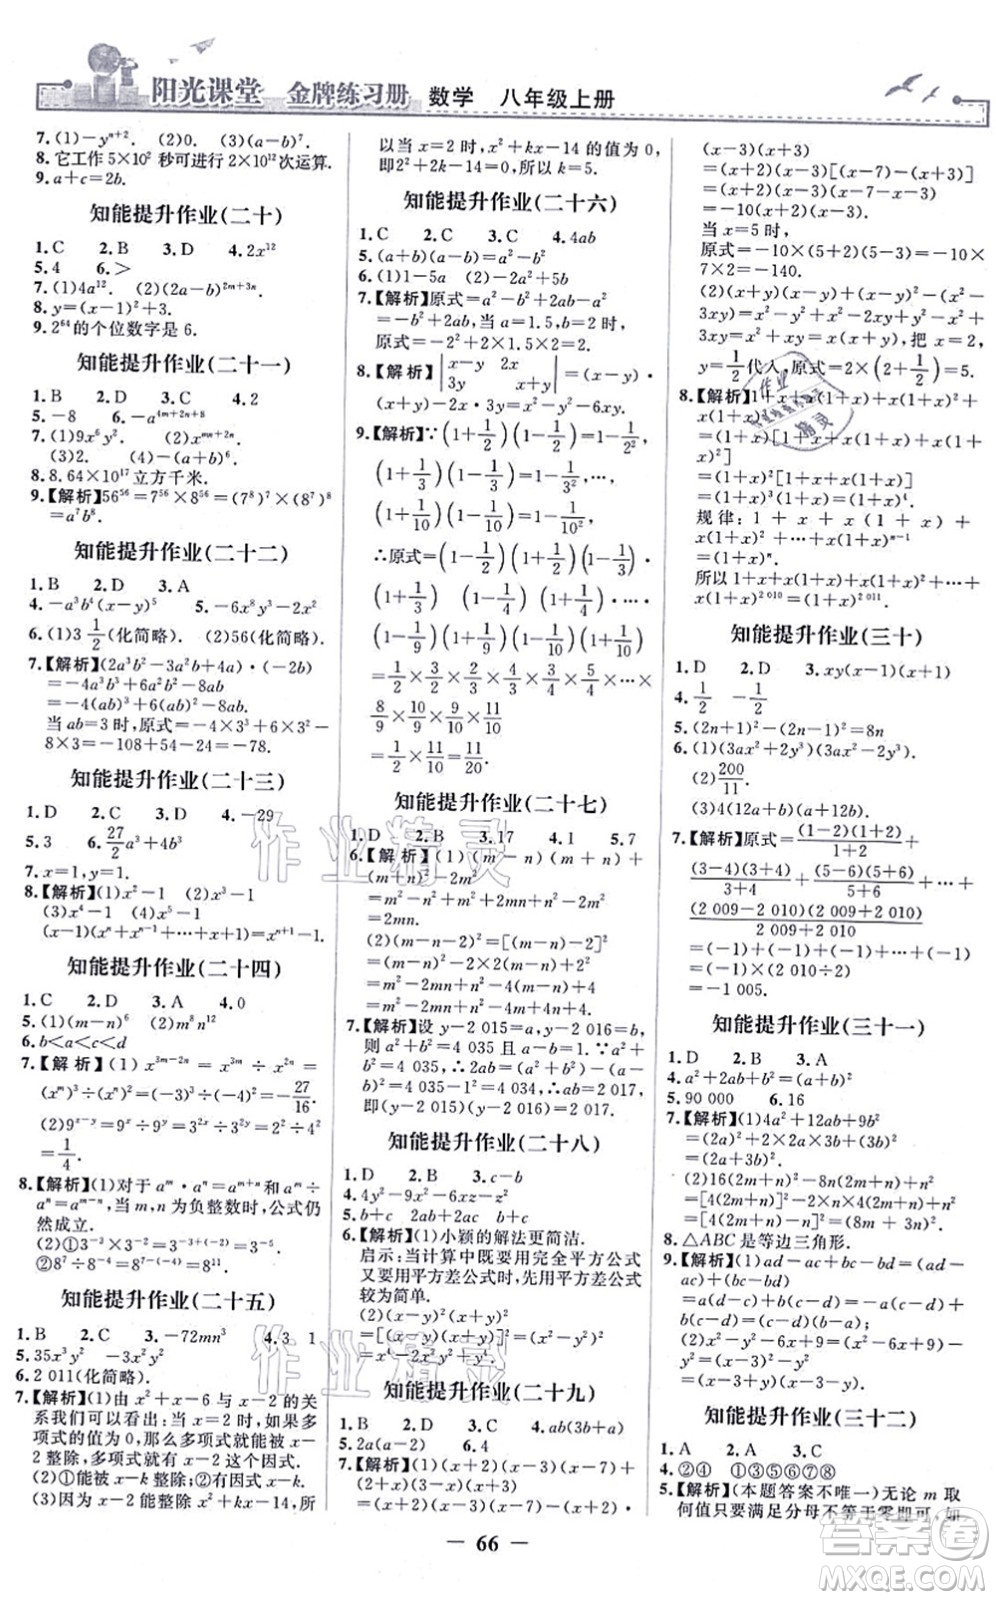 阳光课堂 金牌练习册 数学 八年级上册
7.(1)-yⁿ⁺². (2)0. (3)-(a-b)⁷.
8.它工作 5×10² 秒可进行 2×10¹² 次运算.
9.a+c=2b.
知能提升作业(二十)
1.C 2.B 3.D 4.2x¹²
5.4 6.>
7.(1)4a¹². (2)(2a-b)²ᵐ⁺³ⁿ.
8.y=(x-1)²+3.
9.2⁶⁴的个位数字是 6.
知能提升作业(二十一)
1.B 2.D 3.C 4.2
5.-8 6.-a⁴ᵐ⁺²ⁿ⁺⁸
7.(1)9x⁶y⁶. (2)xᵐⁿ⁺²ⁿ.
(3)2. (4)-(a-b)⁶.
8.8.64×10¹⁷立方千米.
9.【解析】56⁵⁶=7⁵⁶×8⁵⁶=(7⁸)⁷×(8⁷)⁸
=a⁷b⁸.
知能提升作业(二十二)
1.B 2.D 3.A
4.-a³b⁴(x-y)⁵ 5.-6x⁸y³-2xy
6.(1)3 1/2(化简略). (2)56(化简略).
7.【解析】(2a³b³-3a²b²+4a)·(-2b)
=-4a³b³+6a²b²-8ab
=-4(ab)³+6(ab)²-8ab.
当 ab=3 时,原式=-4×3³+6×3²-
8×3=-108+54-24=-78.
知能提升作业(二十三)
1.D 2.C 3.A 4.-29
5.3 6.27/2a³+4b³
7.x=1,y=1.
8.【解析】(1)x²-1 (2)x³-1
(3)x⁴-1 (4)x⁵-1
(x-1)(xⁿ+xⁿ⁻¹+…+x+1)=xⁿ⁺¹-1.
知能提升作业(二十四)
1.C 2.D 3.A 4.0
5.(1)(m-n)⁶ (2)m⁸n¹²
6.b<a<d<c
7.【解析】(1)x³ᵐ⁻²ⁿ=x³ᵐ÷x²ⁿ=
(xᵐ)³÷(xⁿ)²=(-3)³÷(-4)²=-27/16.
(2)9ˣ⁻ʸ=9ˣ÷9ʸ=3²ˣ÷3²ʸ=(3ˣ)²÷(3ʸ)²
=1/4.
8.【解析】(1)对于 aᵐ·aⁿ=aᵐ⁺ⁿ 和 aᵐ÷
aⁿ=aᵐ⁻ⁿ,当 m,n 为负整数时,公式仍
然成立.
(2)①3⁻³×3⁻²=3⁻³⁺⁽⁻²⁾=3⁻⁵.
②8⁷÷8⁻⁴=8⁷⁻⁽⁻⁴⁾=8¹¹.
知能提升作业(二十五)
1.B 2.B 3.-72mn³ 4.3 1
5.35x³y² -3x²y³
6.2 011(化简略).
7.【解析】(1)由 x²+x-6 与 x-2 的关
系我们可以看出:当 x=2 时,如果多
项式的值为 0,那么多项式就能被 x-
2 整除,多项式就有 x-2 这个因式.
(2)①能被 x-k 整除;②有因式 x-k.
(3)因为 x-2 能整除 x²+kx-14,所
以当 x=2 时,x²+kx-14 的值为 0,
即2²+2k-14=0,所以 k=5.
知能提升作业(二十六)
1.C 2.C 3.C 4.4ab
5.(a+b)(a-b)=a²-b²
6.(1)1-5a (2)-2x²+5b
7.【解析】原式=a²-b²+2ab+b²-
a²=2ab.当 a=1.5,b=2 时,
原式=2×1.5×2=6.
8.【解析】|x-y x-y 3y x+y|=(x-y)
·(x+y)-2x·3y=x²-y²-6xy.
9.【解析】∵(1+1/2)(1-1/2)=1-1/2²,
(1+1/3)(1-1/3)=1-1/3²,…,
(1+1/10)(1-1/10)=1-1/10²,
∴原式=(1-1/2)(1+1/2)(1-1/3)
(1+1/3)(1-1/4)(1+1/4)·…·
(1-1/9)(1+1/9)(1-1/10)(1+1/10)
=1/2×3/2×2/3×4/3×3/4×5/4×…×
8/9×10/9×9/10×11/10
=1/2×11/10=11/20.
知能提升作业(二十七)
1.D 2.B 3.17 4.1 5.7
6.【解析】(1)(m-n)(m+n)+
(m+n)²-2m²
=m²-n²+m²+2mn+n²-2m²
=2mn.
(2)(m-n-2)²=[(m-n)-2]²
=(m-n)²-2×2(m-n)+2²
=m²-2mn+n²-4(m-n)+4
=m²-2mn+n²-4m+4n+4.
7.【解析】设 y-2 015=a,y-2 016=b,
则 a²+b²=4 035,a-b=1.∵(a-b)²=
a²-2ab+b²,∴2ab=(a²+b²)-
(a-b)²=4 035-1=4 034,ab=2 017,
即(y-2 015)(y-2 016)=2 017.
知能提升作业(二十八)
1.D 2.B 3.c-b
4.4x²-9y²-6xz-z²
5.b+c 2ab+2ac 2bc
6.【解析】(1)小颖的解法更简洁.
启示:当计算中既要用完全平方公式
又要用平方差公式时,先用平方差公式
较为简单.
(2)(x-y)²(x+y)²
=[(x-y)(x+y)]²=(x²-y²)²
=x⁴-2x²y²+y⁴.
知能提升作业(二十九)
1.D 2.C 3.C 4.ab(3b+a)
5.2a(a-2) 6.4
7.【解析】(1)(x+2)(x-3)(x-7)+
(x+2)(3-x)(x+3)
=(x+2)(x-3)(x-7)-(x+2)·
(x-3)(x+3)
=(x+2)(x-3)[(x-7)-(x+3)]
=(x+2)(x-3)(x-7-x-3)
=-10(x+2)(x-3).
当 x=5 时,
原式=-10×(5+2)(5-3)=-10×
7×2=-140.
(2)(x+y)(x-y)+(x-y)²-(x²-
3xy)=x²-y²+x²-2xy+y²-x²+
3xy=x²+xy=x(x+y),把 x=2,
y=1/2代入,原式=2×(2+1/2)=5.
8.【解析】1+x+x(1+x)+x(1+x)²+
x(1+x)³
=(1+x)[1+x+x(1+x)+
x(1+x)²]
=(1+x)(1+x)[1+x+x(1+x)]
=(1+x)²(1+x)(1+x)=(1+x)⁴.
规律:1+x+x(1+x)+…+
x(1+x)ⁿ⁻¹
=(1+x)ⁿ.
所以 1+x+x(1+x)+…+
x(1+x)²⁰¹⁰=(1+x)²⁰¹¹.
知能提升作业(三十)
1.D 2.D 3.xy(x-1)(x+1)
4.1/2 -1/2
5.(2n+1)²-(2n-1)²=8n
6.(1)(3ax²+2y³)(3ax²-2y³).
(2)200/11.
(3)4(2a+b)(a+2b).
7.【解析】原式=(1-2)(1+2)/1+2+
(3-4)(3+4)/3+4+(5-6)(5+6)/5+6+…+
(2 009-2 010)(2 009+2 010)/2 009+2 010
=(-1)+(-1)+(-1)+…+(-1)
=(-1)×(2 010÷2)
=-1 005.
知能提升作业(三十一)
1.D 2.B 3.A
4.a²+2ab+b²=(a+b)²
5.90 000 6.16
7.【解析】(1)4a²+12ab+9b²
=(2a)²+2×2a×3b+(3b)²
=(2a+3b)².
(2)16(2m+n)²-8n(2m+n)+n²
=[4(2m+n)]²-2×n×4(2m+n)+n²
=[4(2m+n)-n]²=(8m+3n)².
8.△ABC 是等边三角形.
9.【解析】(1)ac-bc-ad+bd
=(ac-ad)-(bc-bd)
=a(c-d)-b(c-d)=(a-b)(c-d).
(2)x²-y²-6x+9=(x²-6x+9)
-y²=(x-3)²-y²
=(x-3+y)(x-3-y).
知能提升作业(三十二)
1.A 2.A 3.C
4.②④ ①③⑤⑥⑦⑧
5.【解析】(本题答案不唯一)无论 m 取
何值只要满足分母不等于零即可,如
66
作业精灵
作业精灵
作业精灵
答案圈
MXQE.COM